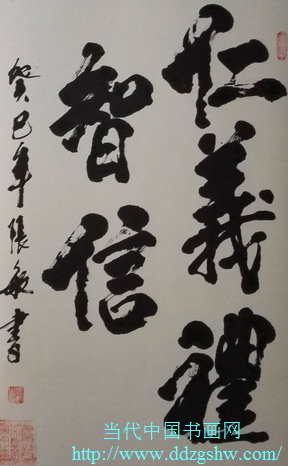 仁義禮
智信
癸巳年張敏書
当代中国书画网
www.ddzgshw.com